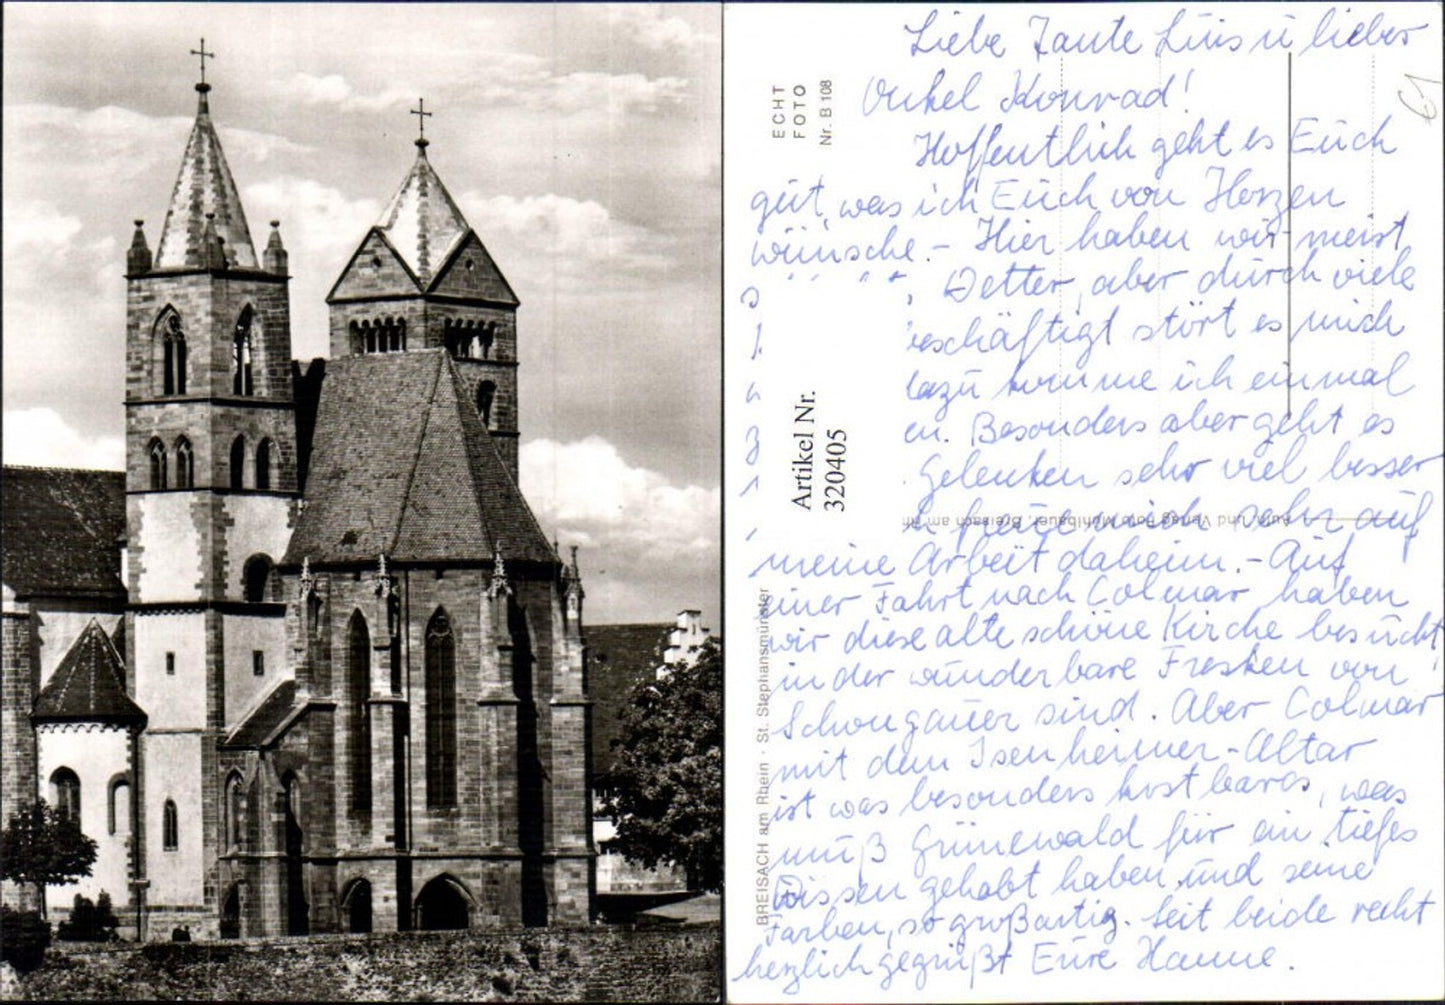 Liebe Tante Luis u lieber
Onkel Konrad!
Hoffentlich geht es Euch
gut, was ich Euch von Herzen
wünsche. - Hier haben wir meist
Wetter, aber durch viele
eschäftigt stört es mich
dazu komme ich einmal
en. Besonders aber geht es
Gelenken sehr viel besser
freue mich sehr auf
meine Arbeit daheim. - Auf
einer Fahrt nach Colmar haben
wir diese alte schöne Kirche besucht,
in der wunderbare Fresken von
Schongauer sind. Aber Colmar
mit dem Isenheimer-Altar
ist was besonders kostbares, was
muß Grünewald für ein tiefes
Wissen gehabt haben und seine
Farben, so großartig. Seit beide recht
herzlich gegrüßt Eure Hanne.
61
ECHT
FOTO
Nr. B 108
Artikel Nr.
320405
Verlag Foto Mühlbauer, Breisach am Rh
BREISACH am Rhein · St. Stephansmünster